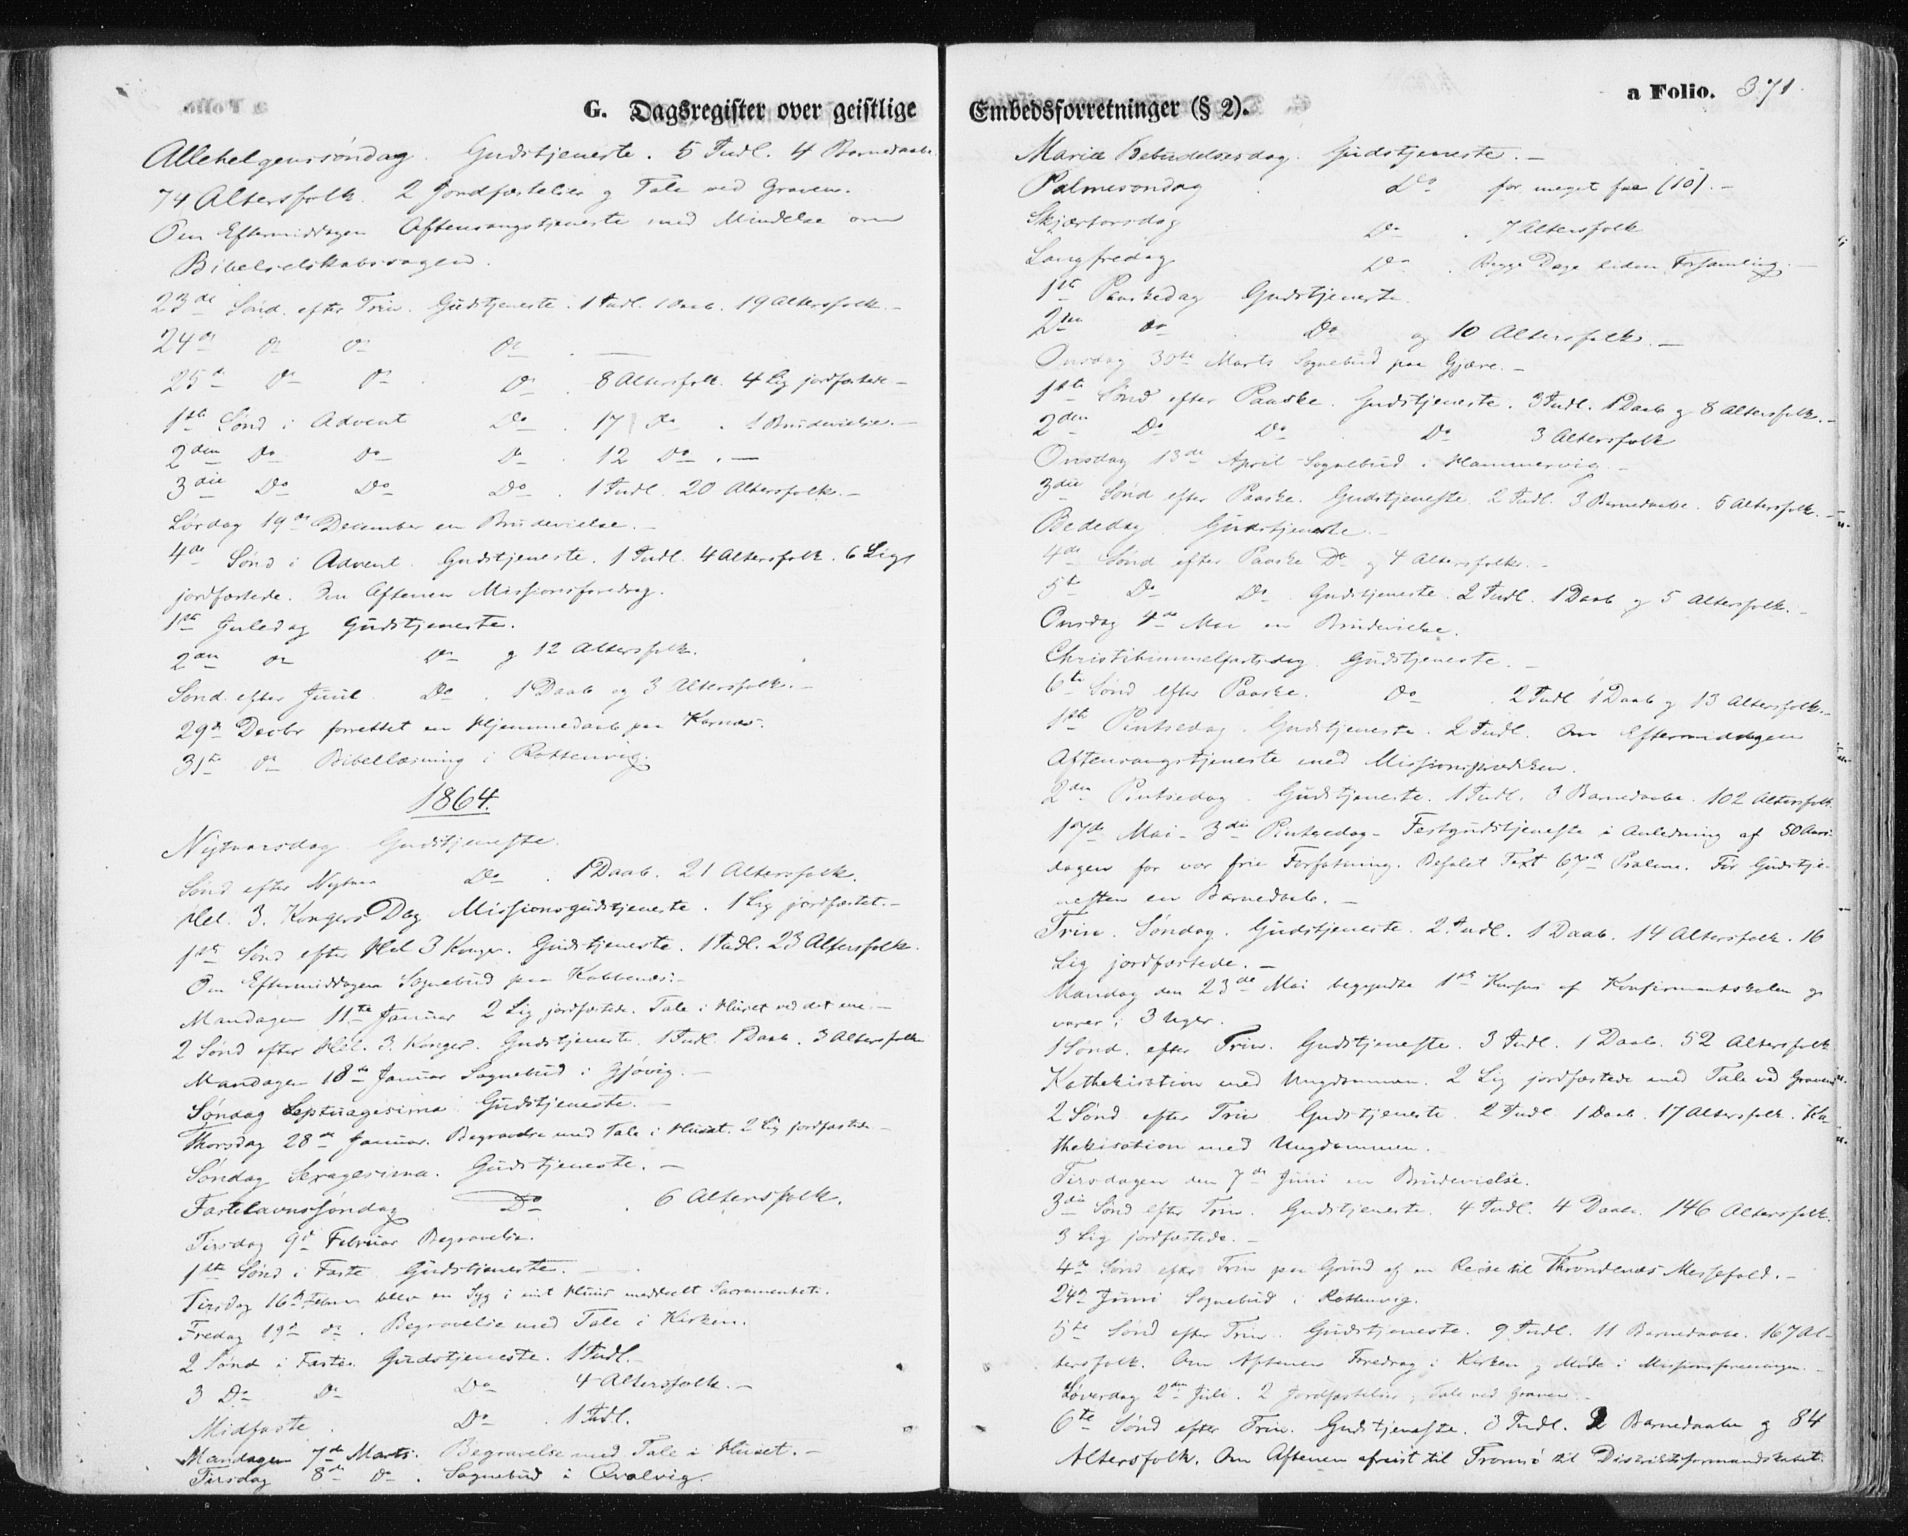 G. Dagsregister over geistlige
Allehelgenssøndag. Gudstjeneste. 5 Indl. 4 Barnedaab.
74 Altersfolk. 2 Jordfæstelser og Tale ved Graven.
Om Eftermiddagen Aftensangstjeneste med Mindelse om
Bibelselskabssagen.
23de Sønd. efter Trin. Gudstjeneste. 1 Indl. 1 Daab. 19 Altersfolk. –
24de Do Do Do . —
25de Do Do . Do . 8 Altersfolk. 4 Lig jordfæstede –
1ste Sønd i Advent Do . 17 do . 1 Brudevielse. –
2den Do Do Do . 12 Do . –
3die Do Do Do . 1 Indl. 20 Altersfolk. –
Lørdag 19de December en Brudevielse. –
4de Sønd i Advent. Gudstjeneste. 1 Indl. 4 Altersfolk. 6 Lig
jordfæstede. Om Aftenen Missionsforedrag.
1ste Juledag Gudstjeneste.
2den do Do og 12 Altersfolk.
Sønd. efter Juul. Do . 1 Daab og 3 Altersfolk. –
29de Decbr forrettet en Hjemmedaab paa
31te do Bibellæsning i Rottenvig.
1864.
Nytaarsdag Gudstjeneste.
Sønd efter Nytaar Do . 1 Daab. 21 Altersfolk.
Hel. 3. Kongers Dag Missionsgudstjeneste. 1 Lig jordfæstet. –
1ste Sønd efter Hel 3 Konger. Gudstjeneste. 1 Indl. 23 Altersfolk.
Om Eftermiddagen Sognebud paa
Mandagen 11te Januar 2 Lig jordfæstede. Tale i Huset ved det ene. –
2 Sønd efter Hel. 3. Konger. Gudstjeneste. 1 Indl. 1 Daab. 3 Altersfolk
Mandagen 18de Januar Sognebud i Gjøvig. –
Søndag Septuagesima Gudstjeneste. –
Thorsdag 28de Januar. Begravelse med Tale i Huset. 2 Lig jordfæstede –
Søndag Sexagesima. Gudstjeneste. –
Fastelavnssøndag Do . 6 Altersfolk.
Tirsdag 9de Februar Begravelse.
1ste Sønd i Faste Gudstjeneste. –
Tirsdag 16de Februar blev en Syg i mit Huus meddeelt Sacramentet.
Fredag 19de do . Begravelse med Tale i Kirken.
2 Sønd i Faste. Gudstjeneste. 1 Indl. –
3 Do Do Do . 4 Altersfolk. –
Midfaste . Do . 1 Indl.
Mandagen 7de Marts. Begravelse med Tale i Huset. –
Tirsdag 8de Do . Sognebud i Qvalvig.
Embedsforretninger (§ 2).
a Folio. 371
Mariæ Bebudelsesdag. Gudstjeneste. –
Palmesøndag . Do for meget faa (10). –
Skjærtorsdag Do . 7 Altersfolk
Langfredag Do . Begge Dage liden Forsamling. –
1ste Paaskedag Gudstjeneste.
2den do . Do og 10 Altersfolk. –
Onsdag 30te Marts Sognebud paa Gjære. –
1ste Sønd efter Paaske. Gudstjeneste. 3 Indl. 1 Daab og 8 Altersfolk. –
2den Do Do Do 3 Altersfolk
Onsdag 13de April Sognebud i Hammervig. –
3die Sønd efter Paaske. Gudstjeneste 2 Indl. 3 Barnedaabe. 5 Altersfolk. –
Bededag. Gudstjeneste. –
4de Sønd efter Paaske Do og 4 Altersfolk. –
5te Do Do . Gudstjeneste. 2 Indl. 1 Daab og 5 Altersfolk. –
Onsdag 4de Mai en Brudevielse.
Christihimmelfartsdag. Gudstjeneste. –
6te Sønd efter Paaske. Do . 2 Indl 1 Daab og 13 Altersfolk. –
1ste Pintsedag. Gudstjeneste. 2 Indl. Om Eftermiddagen
Aftensangstjeneste med Missionsprædiken.
2den Pintsedag. Gudstjeneste. 1 Indl. 3 Barnedaabe. 102 Altersfolk.
17de Mai – 3die Pintsedag – Festgudstjeneste i Anledning af 50 Aars
dagen for vor frie Forfatning. Befalet Text 67de Psalme. Før Gudstje-
nesten en Barnedaab. –
Trin. Søndag. Gudstjeneste. 2 Indl. 1 Daab. 14 Altersfolk. 16
Lig jordfæstede. –
Mandag den 23de Mai begyndte 1ste Kursus af Konfirmantskolen og
varer i 3 Uger.
1 Sønd. efter Trin. Gudstjeneste. 3 Indl. 1 Daab. 52 Altersfolk
Kathekisation med Ungdommen. 2 Lig jordfæstede med Tale ved Graven
2 Sønd efter Trin Gudstjeneste. 2 Indl 1 Daab. 17 Altersfolk. Ka-
thekisation med Ungdommen.
Tirsdagen den 7de Juni en Brudevielse.
3die Sønd efter Trin. Gudstjeneste. 4 Indl. 4 Daab. 146 Altersfolk.
3 Lig jordfæstede. –
4de Sønd efter Trin paa Grund af en Reise til Throndenæs Messefald. –
24de Juni Sognebud i Rottenvig.
5te Sønd efter Trin. Gudstjeneste. 9 Indl. 11 Barnedaabe. 167 Al-
tersfolk. Om Aftenen Foredrag i Kirken og Møde i Missionsforeningen. –
Løverdag 2den Juli. 2 Jordfæstelser, Tale ved Graven. –
6te Sønd efter Trin. Gudstjeneste. 3 Indl. 2 Barnedaabe og 84
Altersfolk. Om Aftenen afreist til Tromsø til Distriktsformandskabet.